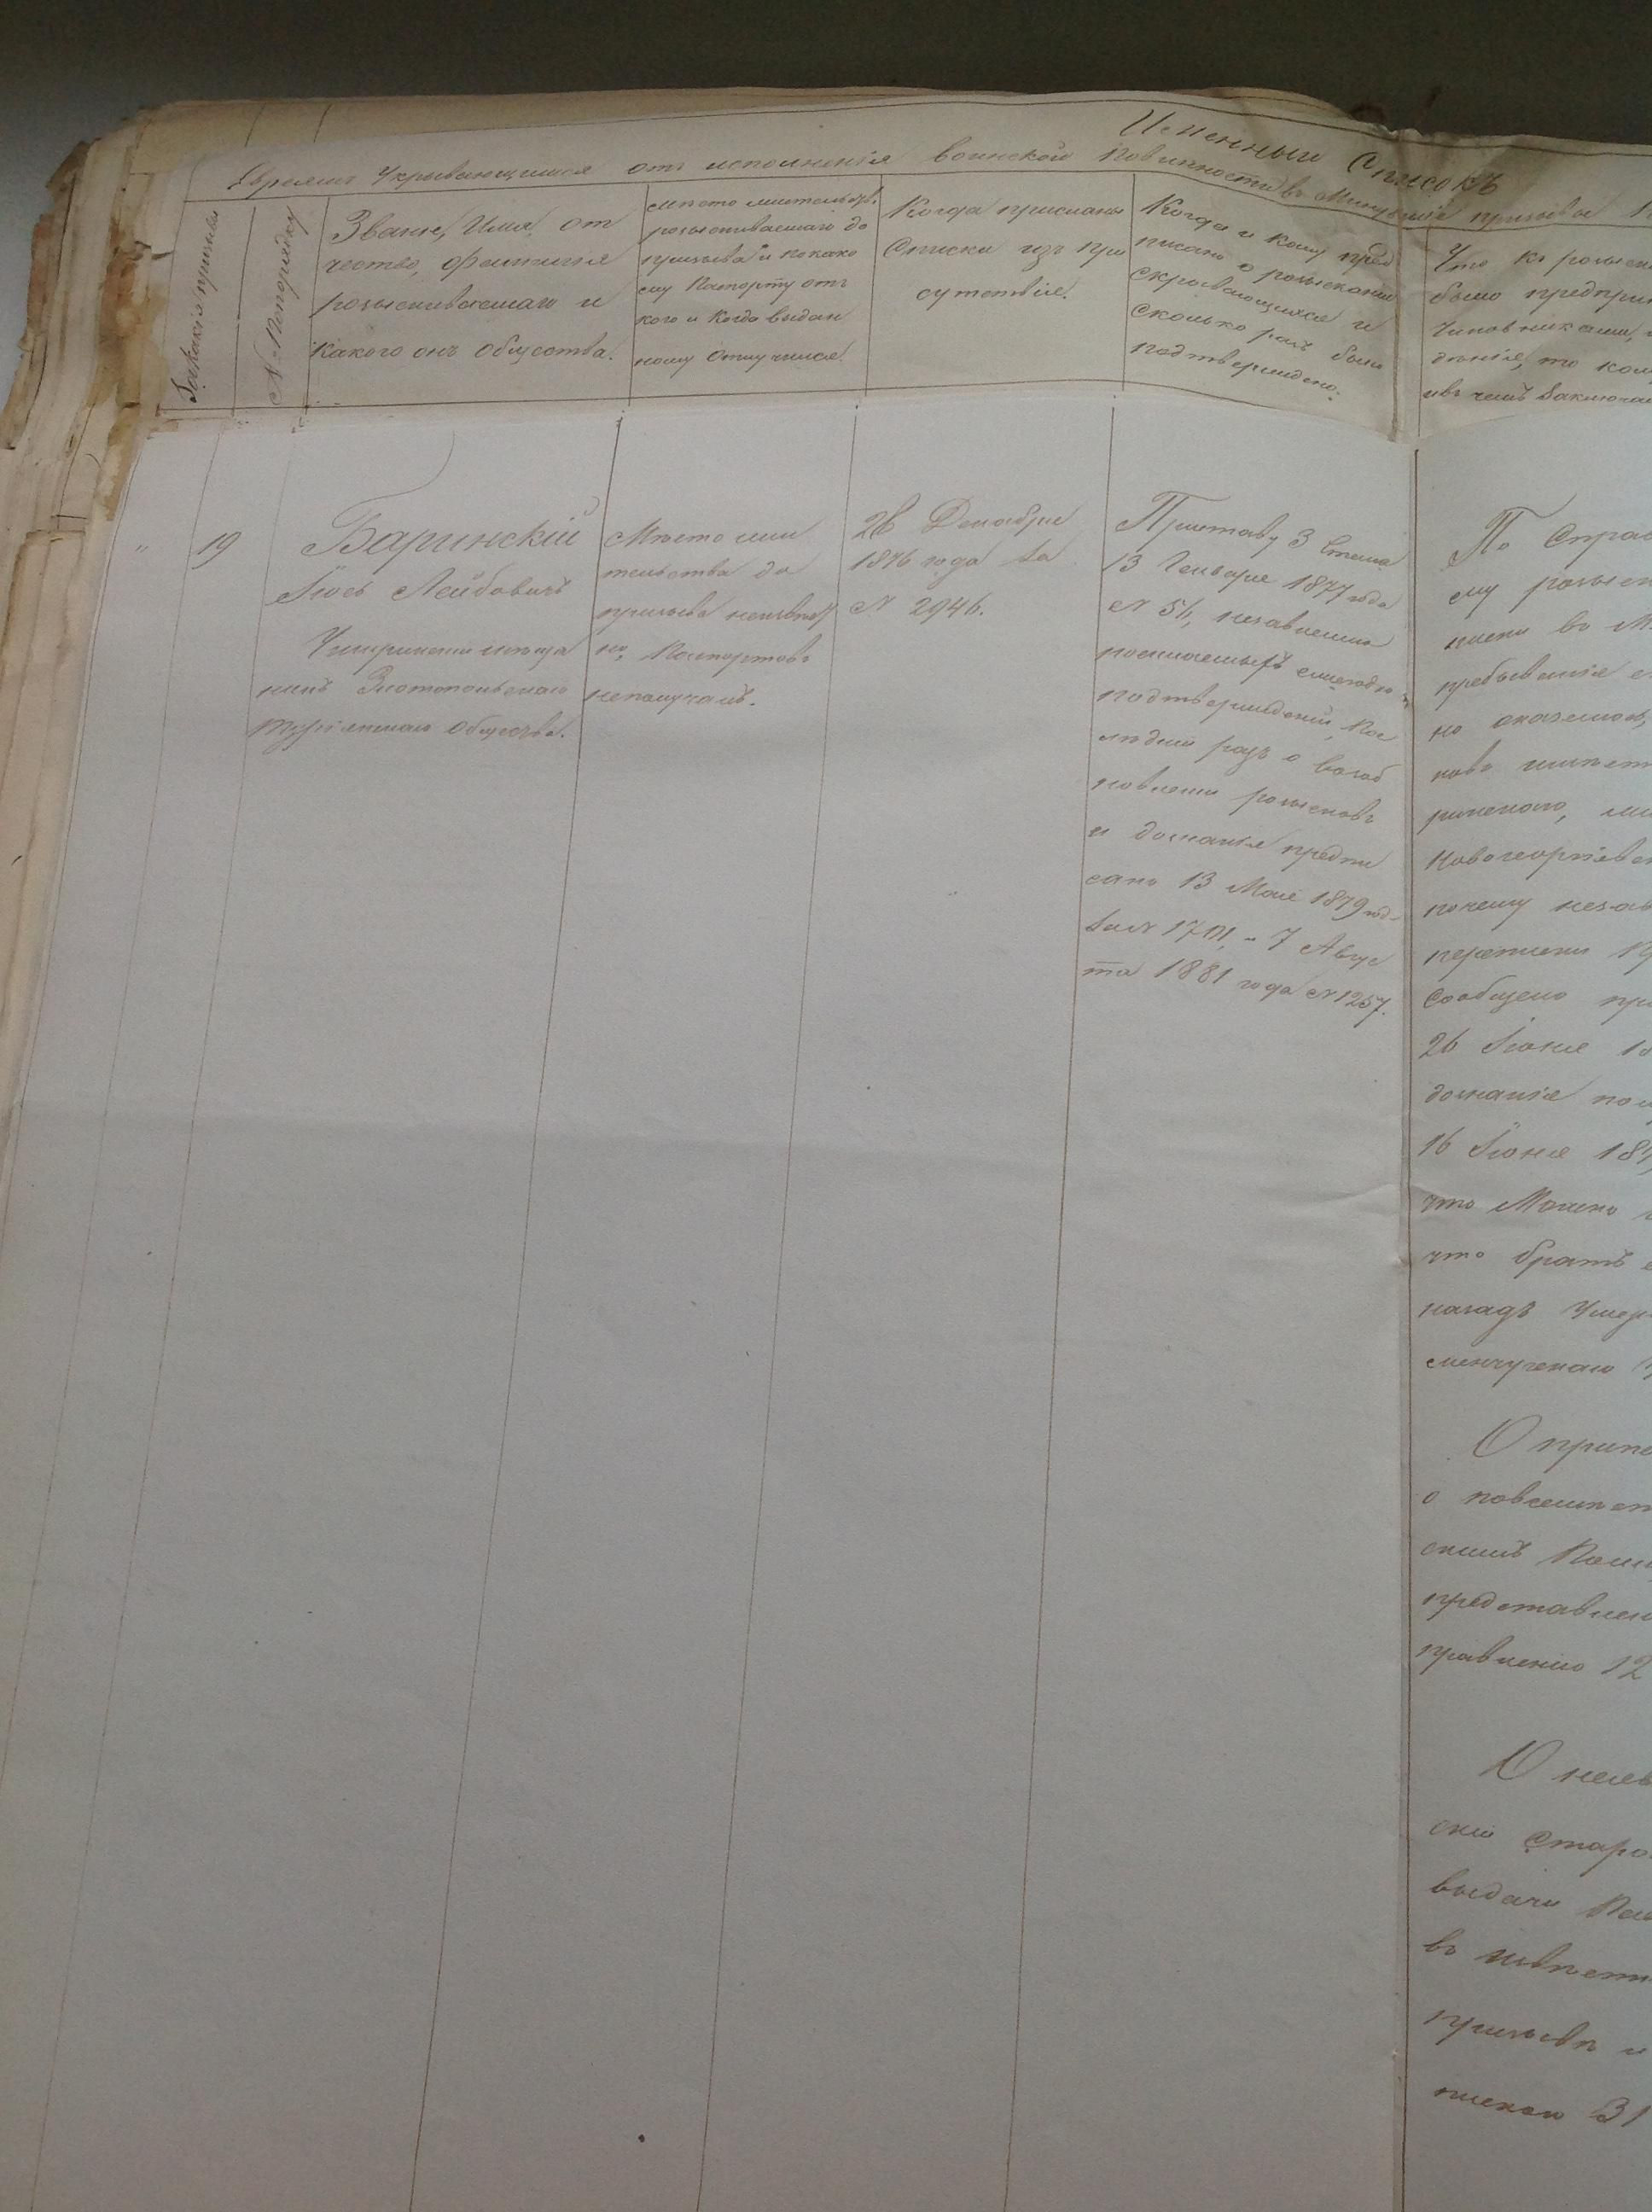 Именный Списокъ
Евреямъ Укрывающимся отъ исполненія воинской повинности въ Минувшіе призывы
За какіе призывы
№ По порядку
Званіе, Имя, от
чество, фамилія
розыскиваемаго и
Какого онъ Общества.
Мѣсто жительств.
розыскиваемаго до
призыва и по како
му Паспорту отъ
кого и Когда выдан
ному Отлучился.
Когда присланы
Списки изъ При
сутствія.
Когда и кому пред
писано о розысканіи
скрывающихся и
Сколько разъ было
подтверждено.
Что къ розыска
было предпри
Чиновниками,
дѣнія, то ко
и въ чемъ Заключа
" 19
Баринскій
Іось Лейбовичъ
Чигиринскій мѣща
нинъ Златопольскаго
Турійскаго Общества.
Мѣсто жи
тельства до
призыва неизвѣст
но, Паспортовъ
неполучалъ.
28 Декабря
1876 года За
№ 2946.
Приставу 3 Стана
13 Генваря 1877 года
№ 51, независимо
посылаемыхъ ежегодно
подтвержденій, Пос
лѣдній разъ о Возоб
новленіи розысковъ
и дознанія предпи
сано 13 Мая 1879 год
За № 1701, - 7 Авгус
та 1881 года № 1257.
По Справ
ему розыск
писки въ М
пребыванія е
но оказалось,
ковъ
ринскаго,
Новогеоргіевс
почему незав
переписки
Сообщено пр
26 Іюня 18
дознанія по
16 Іюня 187
что Можно
что братъ е
назадъ Умер
менчугскаго
О припе
о повсемѣст
скимъ
представлен
правленію 12
О неяв
скій Старо
выдачи Па
въ
призывъ и
писки 31